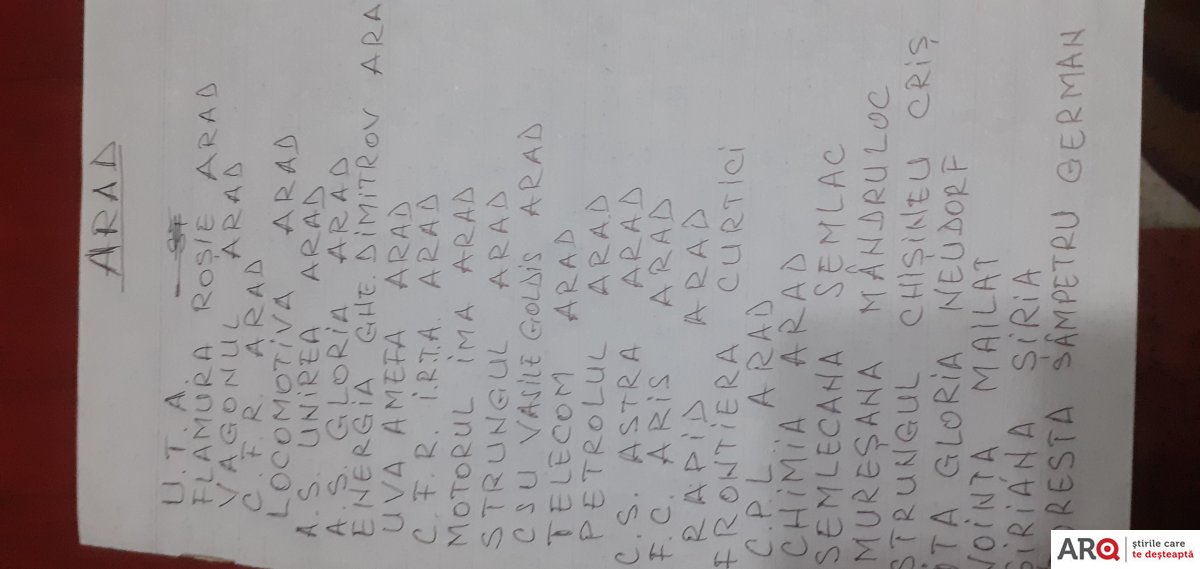 ARAD
U.T.A.
FLAMURA ROȘIE ARAD
VAGONUL ARAD
C.F.R. ARAD
LOCOMOTIVA ARAD
A.S. UNIREA ARAD
A.S. GLORIA ARAD
ENERGIA GHE. DIMITROV ARA
UVA AMEFA ARAD
C.F.R. IRTA ARAD
MOTORUL IMA ARAD
STRUNGUL ARAD
CSU VASILE GOLDIS ARAD
TELECOM ARAD
PETROLUL ARAD
C.S. ASTRA ARAD
F.C. ARIS ARAD
RAPID ARAD
FRONTIERA CURTICI
C.P.L ARAD
CHIMIA ARAD
SEMLECANA SEMLAC
MUREȘANA MÂNDRULOC
STRUNGUL CHIȘINEU CRIȘ
OTA GLORIA NEUDORF
VOINȚA MAILAT
ȘIRIANA ȘIRIA
ORESTA SÂMPETRU GERMAN
ARQ știrile care te deșteaptă